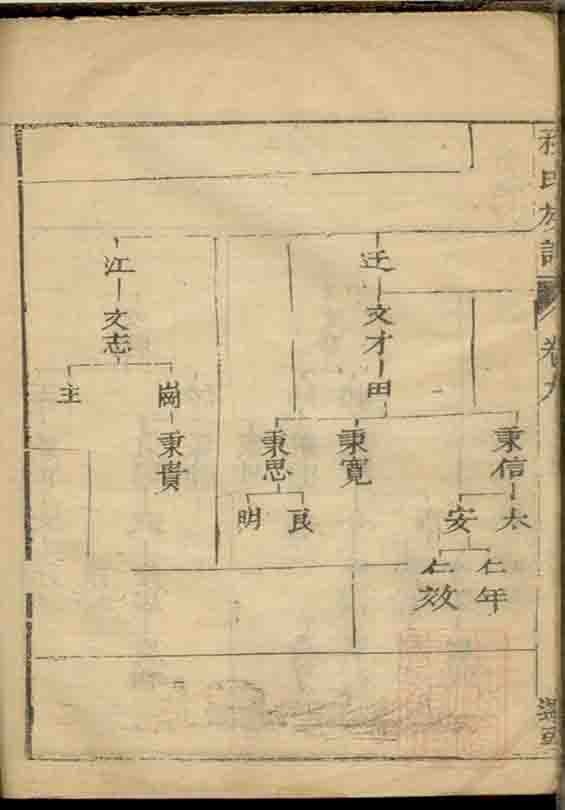 氏族譜 卷九
迁
文才
田
秉信
太
安
仁年
仁效
秉寬
秉思
良
明
江
文志
崗
秉貴
主